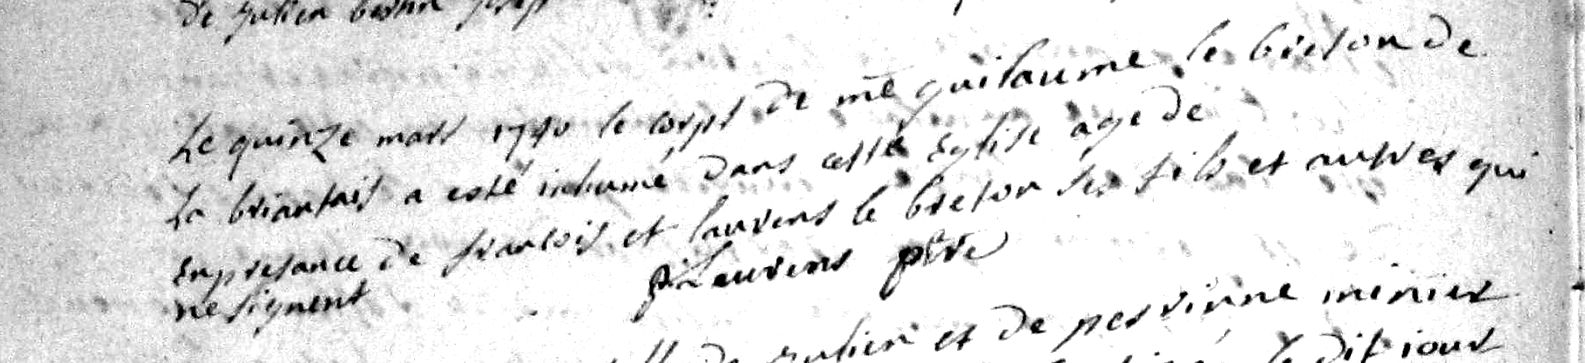 de Julien
Le quinze mars 1740 le corps de me guilaume le breton de
la briantais a esté inhumé dans cette Eglise age de
En presance de francois et laurens le breton ses fils et autres qui
ne signent
laurens père
Julien et de perrinne minier
le dit jour